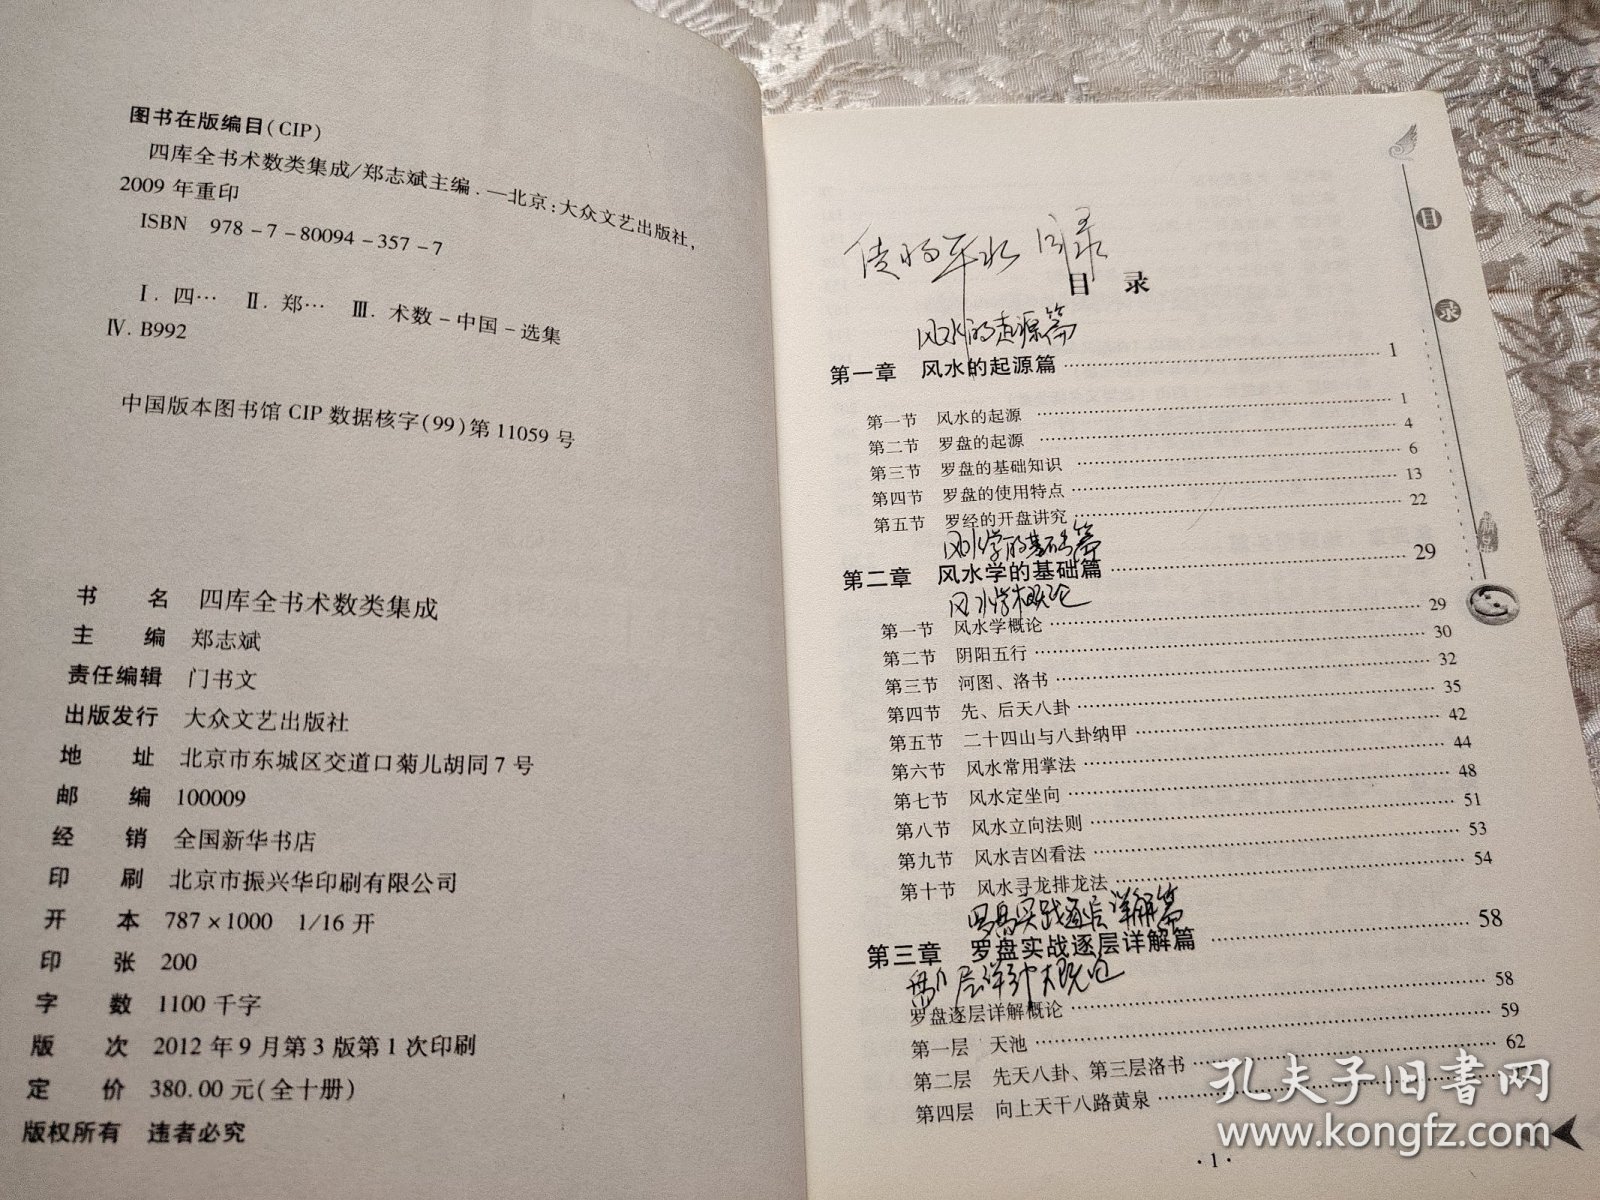 图书在版编目(CIP)
四库全书术数类集成/郑志斌主编.—北京:大众文艺出版社,
2009 年重印
ISBN 978-7-80094-357-7
Ⅰ.四… Ⅱ.郑… Ⅲ.术数-中国-选集
Ⅳ.B992
中国版本图书馆 CIP 数据核字(99)第 11059 号
书 名 四库全书术数类集成
主 编 郑志斌
责任编辑 门书文
出版发行 大众文艺出版社
地 址 北京市东城区交道口菊儿胡同 7 号
邮 编 100009
经 销 全国新华书店
印 刷 北京市振兴华印刷有限公司
开 本 787×1000 1/16 开
印 张 200
字 数 1100 千字
版 次 2012 年 9 月第 3 版第 1 次印刷
定 价 380.00 元(全十册)
版权所有 违者必究
目录
目 录
风水的起源篇
第一章 风水的起源篇 1
第一节 风水的起源 1
第二节 罗盘的起源 4
第三节 罗盘的基础知识 6
第四节 罗盘的使用特点 13
第五节 罗经的开盘讲究 22
风水学的基础篇
第二章 风水学的基础篇 29
风水学概论
第一节 风水学概论 29
第二节 阴阳五行 30
第三节 河图、洛书 32
第四节 先、后天八卦 35
第五节 二十四山与八卦纳甲 42
第六节 风水常用掌法 44
第七节 风水定坐向 48
第八节 风水立向法则 51
第九节 风水吉凶看法 53
第十节 风水寻龙排龙法 54
实践逐层详解篇
第三章 罗盘实战逐层详解篇 58
罗盘逐层详解概论 58
第一层 天池 59
第二层 先天八卦、第三层洛书 62
第四层 向上天干八路黄泉
·1·
目
录
孔夫子旧书网
www.kongfz.com